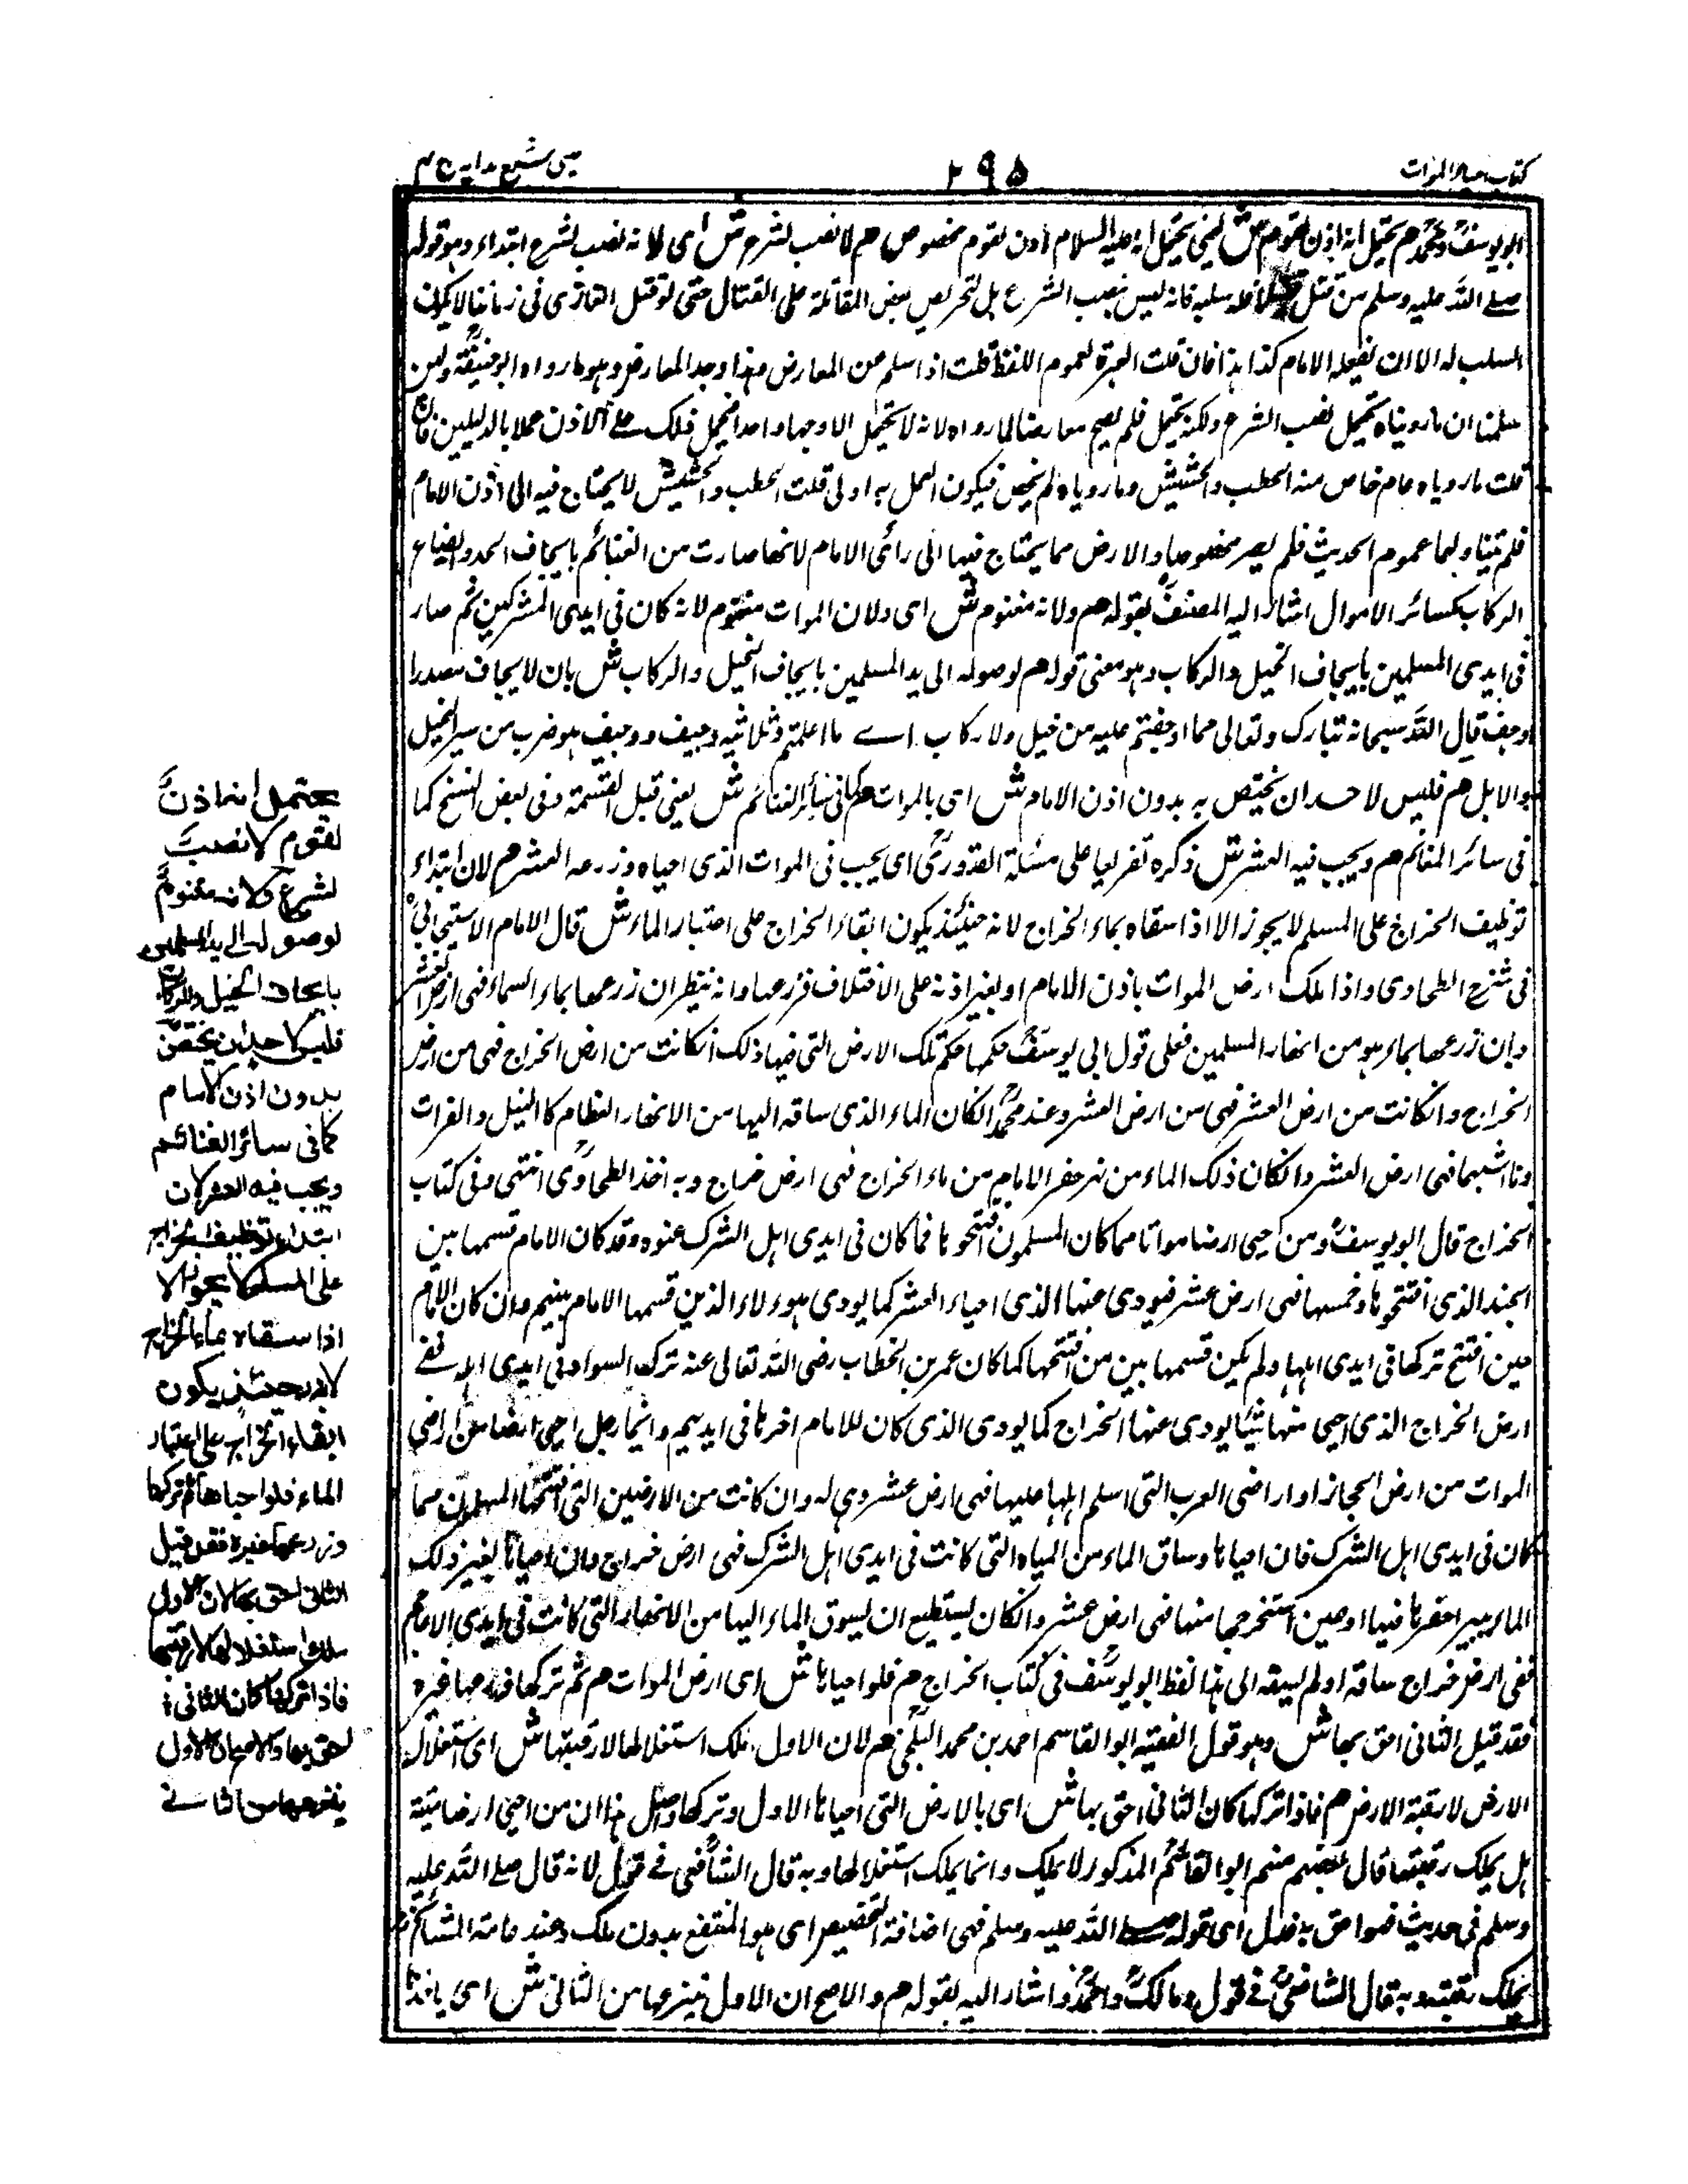 كتاب احياء الموات
٢٩٥
عينى شرح هدايه ج ٤
ابو يوسف ومحمد هم يحتمل انه اذن لقوم ش يعني يحتمل انه عليه السلام اذن لقوم مخصوص هم لا نصب لشرع ش اى لا انه نصب لشرع ابتداء وهو قوله
صلے الله عليه وسلم من قتل قتيلا فله سلبه فانه ليس نصب الشرع بل تحريض بعض المقاتلة على القتال حتى لو قتل الغازى فى زماننا لا يكون
السلب له الا ان يفعله الامام كذا هذا فان قلت العبرة لعموم اللفظ قلت اذا سلم عن المعارض وهنا وجد المعارض وهو ما رواه ابو حنيفة ولئن
سلمنا ان ما رويناه يحتمل نصب الشرع ولكنه يحتمل فلم يصح معارضا لما رواه لانه لا يحتمل الا وجها واحدا فيحمل ذلك على الاذن عملا بالدليلين فان
قلت ما روياه عام خاص منه الحطب والحشيش وما رويناه لم يخص فيكون العمل به اولى قلت الحطب والحشيش لا يحتاج فيه الى اذن الامام
فلم يتناولهما عموم الحديث فلم يصر مخصوصا والارض مما يحتاج فيها الى رأى الامام لانها صارت من الغنائم بايجاف الخيل وايضاع
الركاب كسائر الاموال اشار اليه المصنف بقوله هم ولانه مغنوم ش اى ولان الموات مغنوم لانه كان فى ايدى المشركين ثم صار
فى ايدى المسلمين بايجاف الخيل والركاب وهو معنى قوله هم لوصوله الى يد المسلمين بايجاف الخيل والركاب ش بان الايجاف مصدرا
اوجف قال الله سبحانه تبارك وتعالى مما اوجفتم عليه من خيل ولا ركاب اے ما اعملتم وثلاثيه وجيف ووجيف هو ضرب من سير الخيل
والابل هم فليس لاحد ان يختص به بدون اذن الامام ش اى بالموات هم كما فى سائر الغنائم ش يعنى قبل القسمة وفى بعض النسخ كما
فى سائر المغانم هم ويجب فيه العشر ش ذكره تفريعا على مسئلة القدورى اى يجب فى الموات الذى احياه وزرعه العشر هم لان ابتداء
توظيف الخراج على المسلم لا يجوز الا اذا سقاه بماء الخراج لانه حينئذ يكون ابقاء الخراج على اعتبار الماء ش قال الامام الاسبيجابى
فى شرح الطحاوى واذا ملك ارض الموات باذن الامام او بغير اذنه على الاختلاف فزرعها وانه ينظر ان زرعها بماء السماء فهى ارض العشر
وان زرعها بماء هو من انهار المسلمين فعلى قول ابى يوسف حكمها حكم تلك الارض التى فيها ذلك ان كانت من ارض الخراج فهى من ارض
الخراج وان كانت من ارض العشر فهى من ارض العشر وعند محمد ان كان الماء الذى ساقه اليها من الانهار العظام كالنيل والفرات
وما اشبهما فهى ارض العشر وان كان ذلك الماء من نهر حفر الامام من ماء الخراج فهى ارض خراج وبه اخذ الطحاوى انتهى وفى كتاب
الخراج قال ابو يوسف ومن احيى ارضا مواتا مما كان المسلمون افتتحوها مما كان فى ايدى اهل الشرك عنوة وقد كان الامام قسمها بين
الجند الذى افتتحوها وخمسها فهى ارض عشر فيودى عنها الذى احياه العشر كما يودى هؤلاء الذين قسمها الامام بينهم وان كان الامام
حين افتتح تركها فى ايدى اهلها ولم يكن قسمها بين من افتتحها كما كان عمر بن الخطاب رضى الله تعالى عنه ترك السواد فى ايدى اهله فهى
ارض الخراج الذى احيى منها شيئا يودى عنها الخراج كما يودى الذى كان للامام اقرها فى ايديهم وايما رجل احيى ارضا من اراضى
الموات من ارض الحجاز او اراضى العرب التى اسلم اهلها عليها فهى ارض عشر وهى له وان كانت من الارضين التى افتتحها المسلمون مما
كان فى ايدى اهل الشرك فان احياها وساق الماء من المياه التى كانت فى ايدى اهل الشرك فهى ارض خراج وان احياها بغير ذلك
الماء ببير احتفرها فيها او عين استخرجها منها فهى ارض عشر وان كان يستطيع ان يسوق الماء اليها من الانهار التى كانت فى ايدى الاعاجم
فهى ارض خراج ساقه او لم يسقه الى هنا لفظ ابو يوسف فى كتاب الخراج هم فلو احياها ش اى ارض الموات هم ثم تركها فزرعها غيره
فقد قيل الثانى احق بها ش وهو قول الفقيه ابو القاسم احمد بن محمد البلخى هم لان الاول ملك استغلالها لا رقبتها ش اى استغلال
الارض لا رقبة الارض هم فاذا تركها كان الثانى احق بها ش اى بالارض التى احياها الاول وتركها واصل هذا ان من احيى ارضا ميتة
هل يملك رقبتها قال بعضهم منهم ابو القاسم المذكور لا يملك وانما يملك استغلالها وبه قال الشافعى فے قول لانه قال صلے الله عليه
وسلم فى حديث فهو احق به فدل اى قوله صلے الله عليه وسلم فهى اضافة التخصيص اى هو المنتفع بدون ملك وعند عامة المشائخ
يملك رقبته وبه قال الشافعى فے قول ومالك واحمد واشار اليه بقوله هم والاصح ان الاول ينزعها من الثانى ش اى ياخذها
يحتمل انه اذن
لقوم لا نصب
لشرع ولانه مغنوم
لوصوله الى يد المسلمين
بايجاف الخيل والركاب
فليس لاحد ان يختص
بدون اذن الامام
كما فى سائر الغنائم
ويجب فيه العشر لان
ابتداء توظيف الخراج
على المسلم لا يجوز الا
اذا سقاه بماء الخراج
لانه حينئذ يكون
ابقاء الخراج على اعتبار
الماء فلو احياها ثم تركها
وزرعها غيره فقد قيل
الثانى احق بها لان الاول
ملك استغلالها لا رقبتها
فاذا تركها كان الثانى
احق بها والاصح ان الاول
ينزعها من الثانے